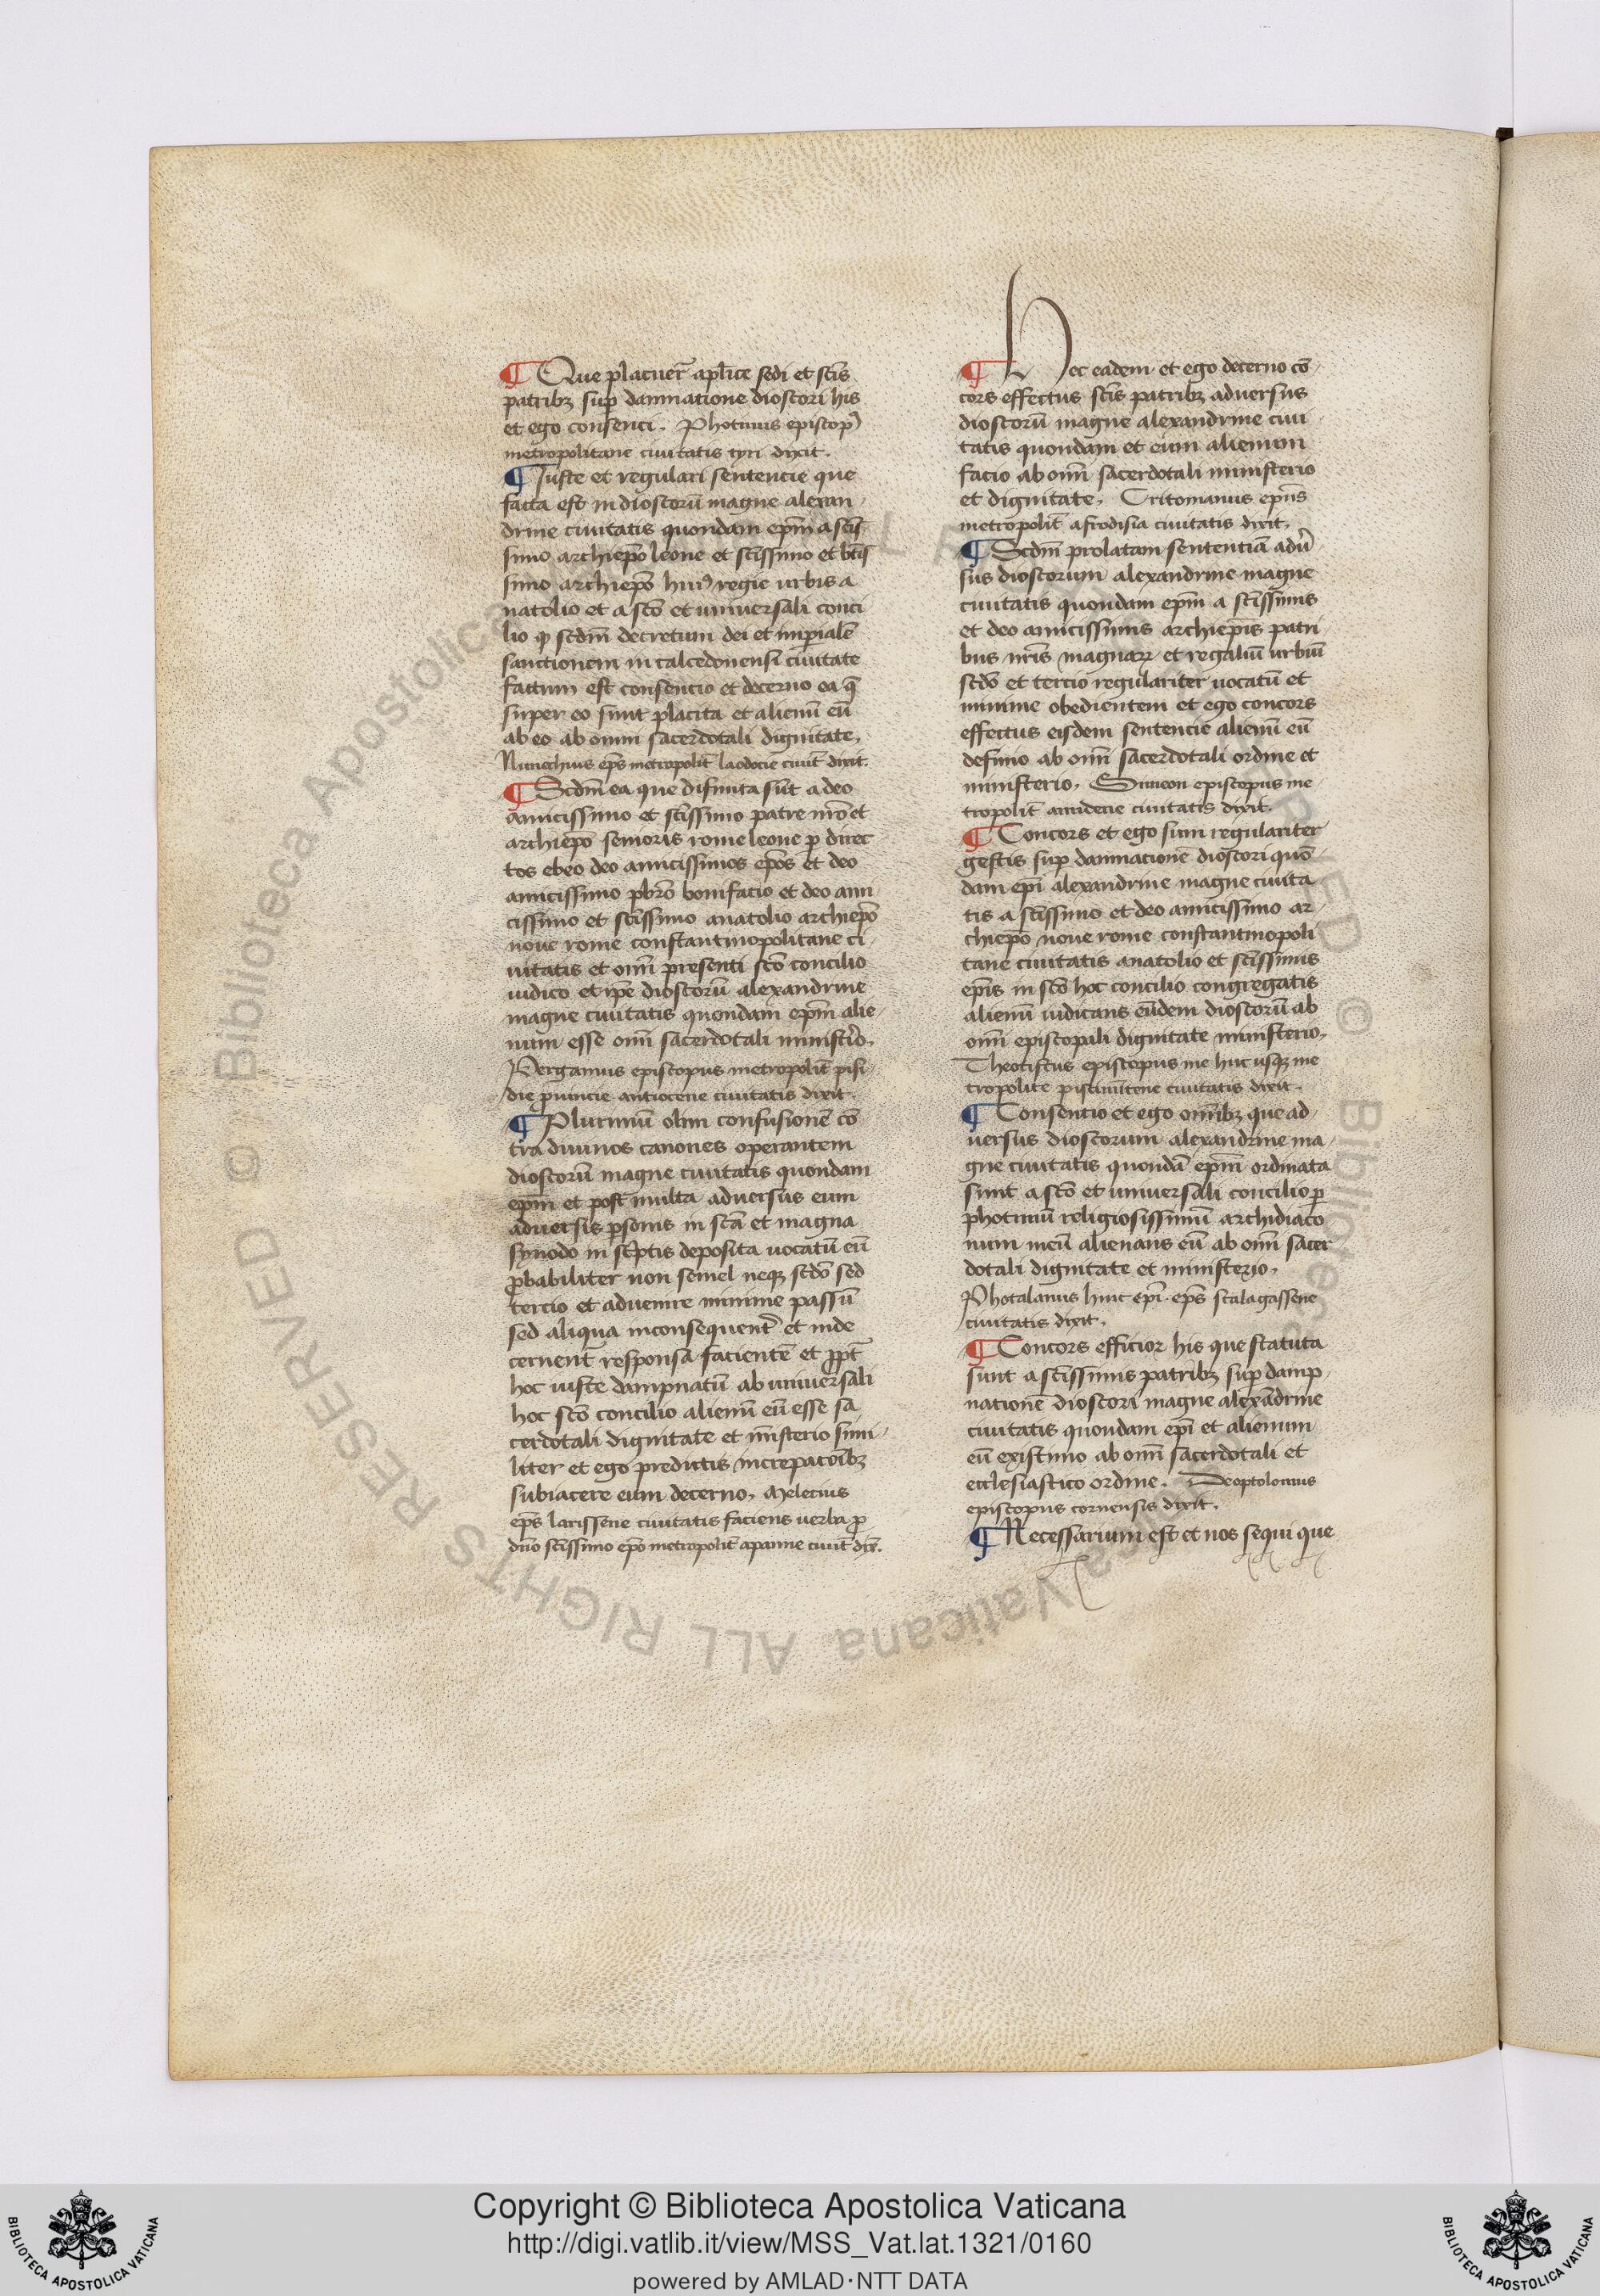 ¶ Que placuer̃ aplice sedi et scis
patribꝫ sup damnatione dioscori his
et ego consenci. Photinus episcopꝰ
metropolitane ciuitatis tyri dixit.
¶ Iuste et regulari sentencie que
facta est in dioscorũ magne alexan
drine ciuitatis quondam epm̃ a scis
simo archiepo leone et scissimo et btis
simo archiepo huiꝰ regie urbis a
natolio et a sco et uniuersali conci
lio ꝙ scdm̃ decretum dei et imperialẽ
sanctionem in calcedonensi ciuitate
factum est consencio et decerno ea q̃
super eo sunt placita et alienũ eũ
ab eo ab omni sacerdotali dignitate.
Nunechius eps metropolit̃ laodocie ciuit̃ dixit.
¶ Scdm̃ ea que difinita sũt a deo
amicissimo et scissimo patre nr̃o et
archiepo senioris rome leone p direc
tos ebeo deo amicissimos epos et deo
amicissimo pbro bonifacio et deo ami
cissimo et scissimo anatolio archiepo
noue rome constantinopolitane ci
uitatis et omi presenti sco concilio
iudico et ipe dioscorũ alexandrine
magne ciuitatis quondam epm̃ alie
num esse omi sacerdotali ministio.
Pergamus episcopus metropolit̃ pisi
die prouincie antiocene ciuitatis dixit.
¶ Plurimũ olim confusionẽ cõ
tra diuinos canones operantem
dioscorũ magne ciuitatis quondam
epm̃ et post multa aduersus eum
aduersis psonis in sca et magna
synodo in scptis deposita uocatũ eũ
probabiliter non semel neqꝫ scdo sed
tercio et aduenire minime passũ
sed aliqua inconsequent̃ et inde
cernent̃ responsa facientẽ et ppt̃
hoc iuste dampnatũ ab uniuersali
hoc sco concilio alienũ eũ esse sa
cerdotali dignitate et misterio simi
liter et ego predictis increpacoibꝫ
subiacere eum decerno. Melecius
eps larissene ciuitatis faciens uerba pro
dño scissimo epo metropolit̃ apamie ciuit̃ dix̃.
¶ Hec eadem et ego decerno cõ
cors effectus scis patribꝫ aduersus
dioscorũ magne alexandrine ciui
tatis quondam et eum alienum
facio ab omi sacerdotali ministerio
et dignitate. Critomanus epus
metropolit̃ afrodisia ciuitatis dixit.
¶ Scdm̃ prolatam sententiã adũ
sus dioscorum alexandrine magne
ciuitatis quondam epm̃ a scissimis
et deo amicissimis archiepis patri
bus nr̃is magnaꝝ et regaliũ urbiũ
scdo et tercio regulariter uocatũ et
minime obedientem et ego concors
effectus eisdem sentencie alienũ eũ
definio ab omi sacerdotali ordine et
ministerio. Simeon episcopus me
tropolit̃ amidene ciuitatis dixit.
¶ Concors et ego sum regulariter
gestis sup damnacionẽ dioscori quõ
dam epi alexandrine magne ciuita
tis a scissimo et deo amicissimo ar
chiepo noue rome constantinopoli
tane ciuitatis anatolio et scissimis
epis in sco hoc concilio congregatis
alienũ iudicans eũdem dioscorũ ab
omi episcopali dignitate ministerio.
Theotistus episcopus me huc usqꝫ me
tropolite pisinũtene ciuitatis dixit.
¶ Consentio et ego omibꝫ que ad
uersus dioscorum alexandrine ma
gne ciuitatis quondã epm̃ ordinata
sunt a sco et uniuersali concilio p
photinũ religiosissimũ archidiaco
num meũ alienans eũ ab omi sacer
dotali dignitate et ministerio.
Photalanus huic epi eps scalagassene
ciuitatis dixit.
¶ Concors efficior his que statuta
sunt a scissimis patribꝫ sup damp
nationẽ dioscori magne alexãdrine
ciuitatis quondam epi et alienum
eũ existimo ab omi sacerdotali et
ecclesiastico ordine. Deoptolomus
episcopus cornensis dixit.
¶ Necessarium est et nos sequi que
Copyright © Biblioteca Apostolica Vaticana
http://digi.vatlib.it/view/MSS_Vat.lat.1321/0160
powered by AMLAD·NTT DATA
BIBLIOTECA APOSTOLICA VATICANA
BIBLIOTECA APOSTOLICA VATICANA
© Biblioteca Apostolica Vaticana ALL RIGHTS RESERVED